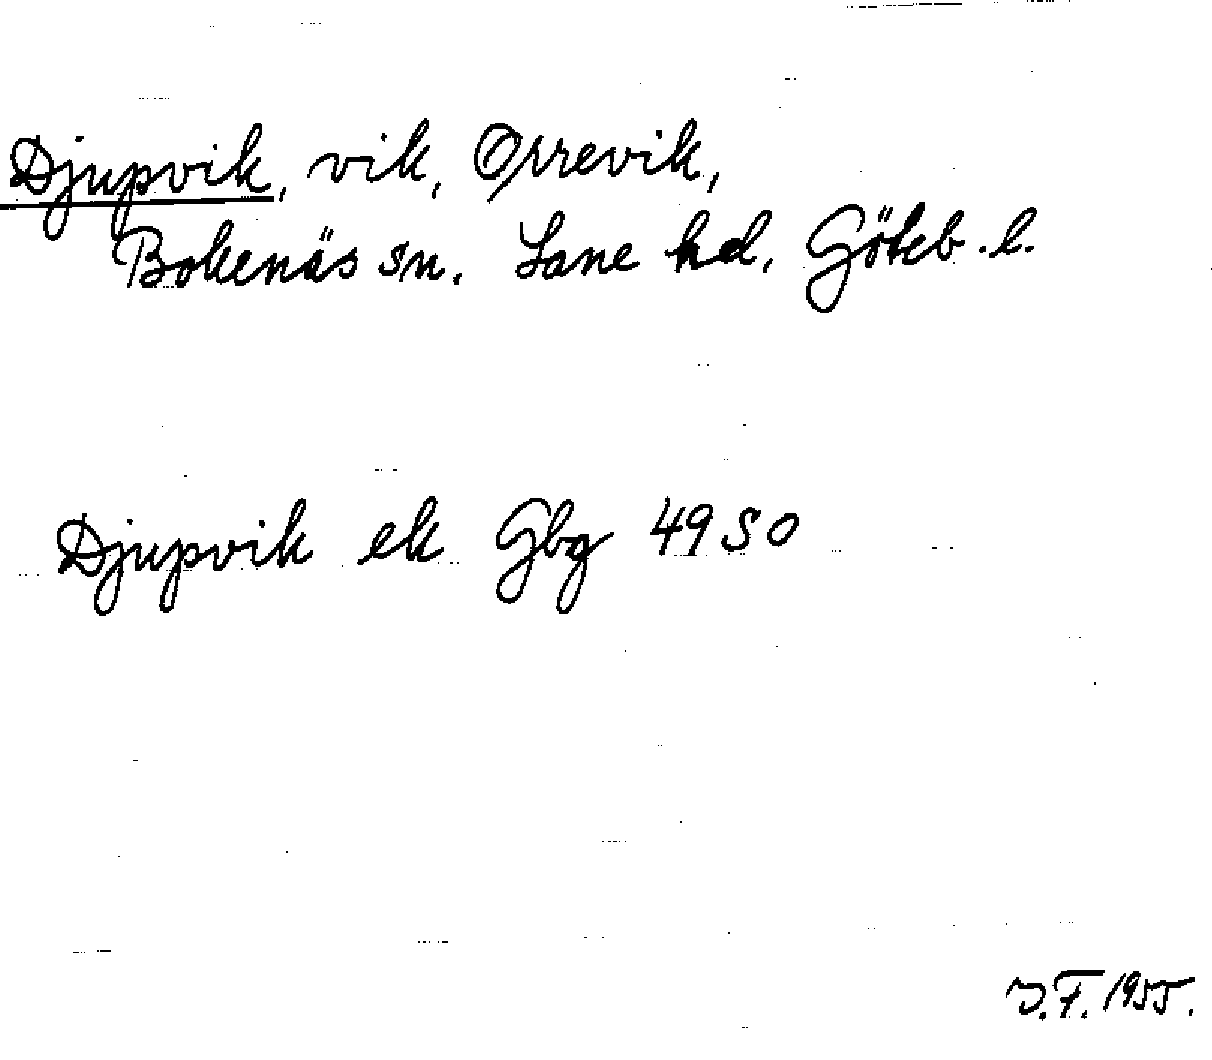 Djupvik, vik, Orrevik,
Bokenäs sn. Lane hd. Göteb.l.
Djupvik ek Gbg 49 SO
J.F. 1955.